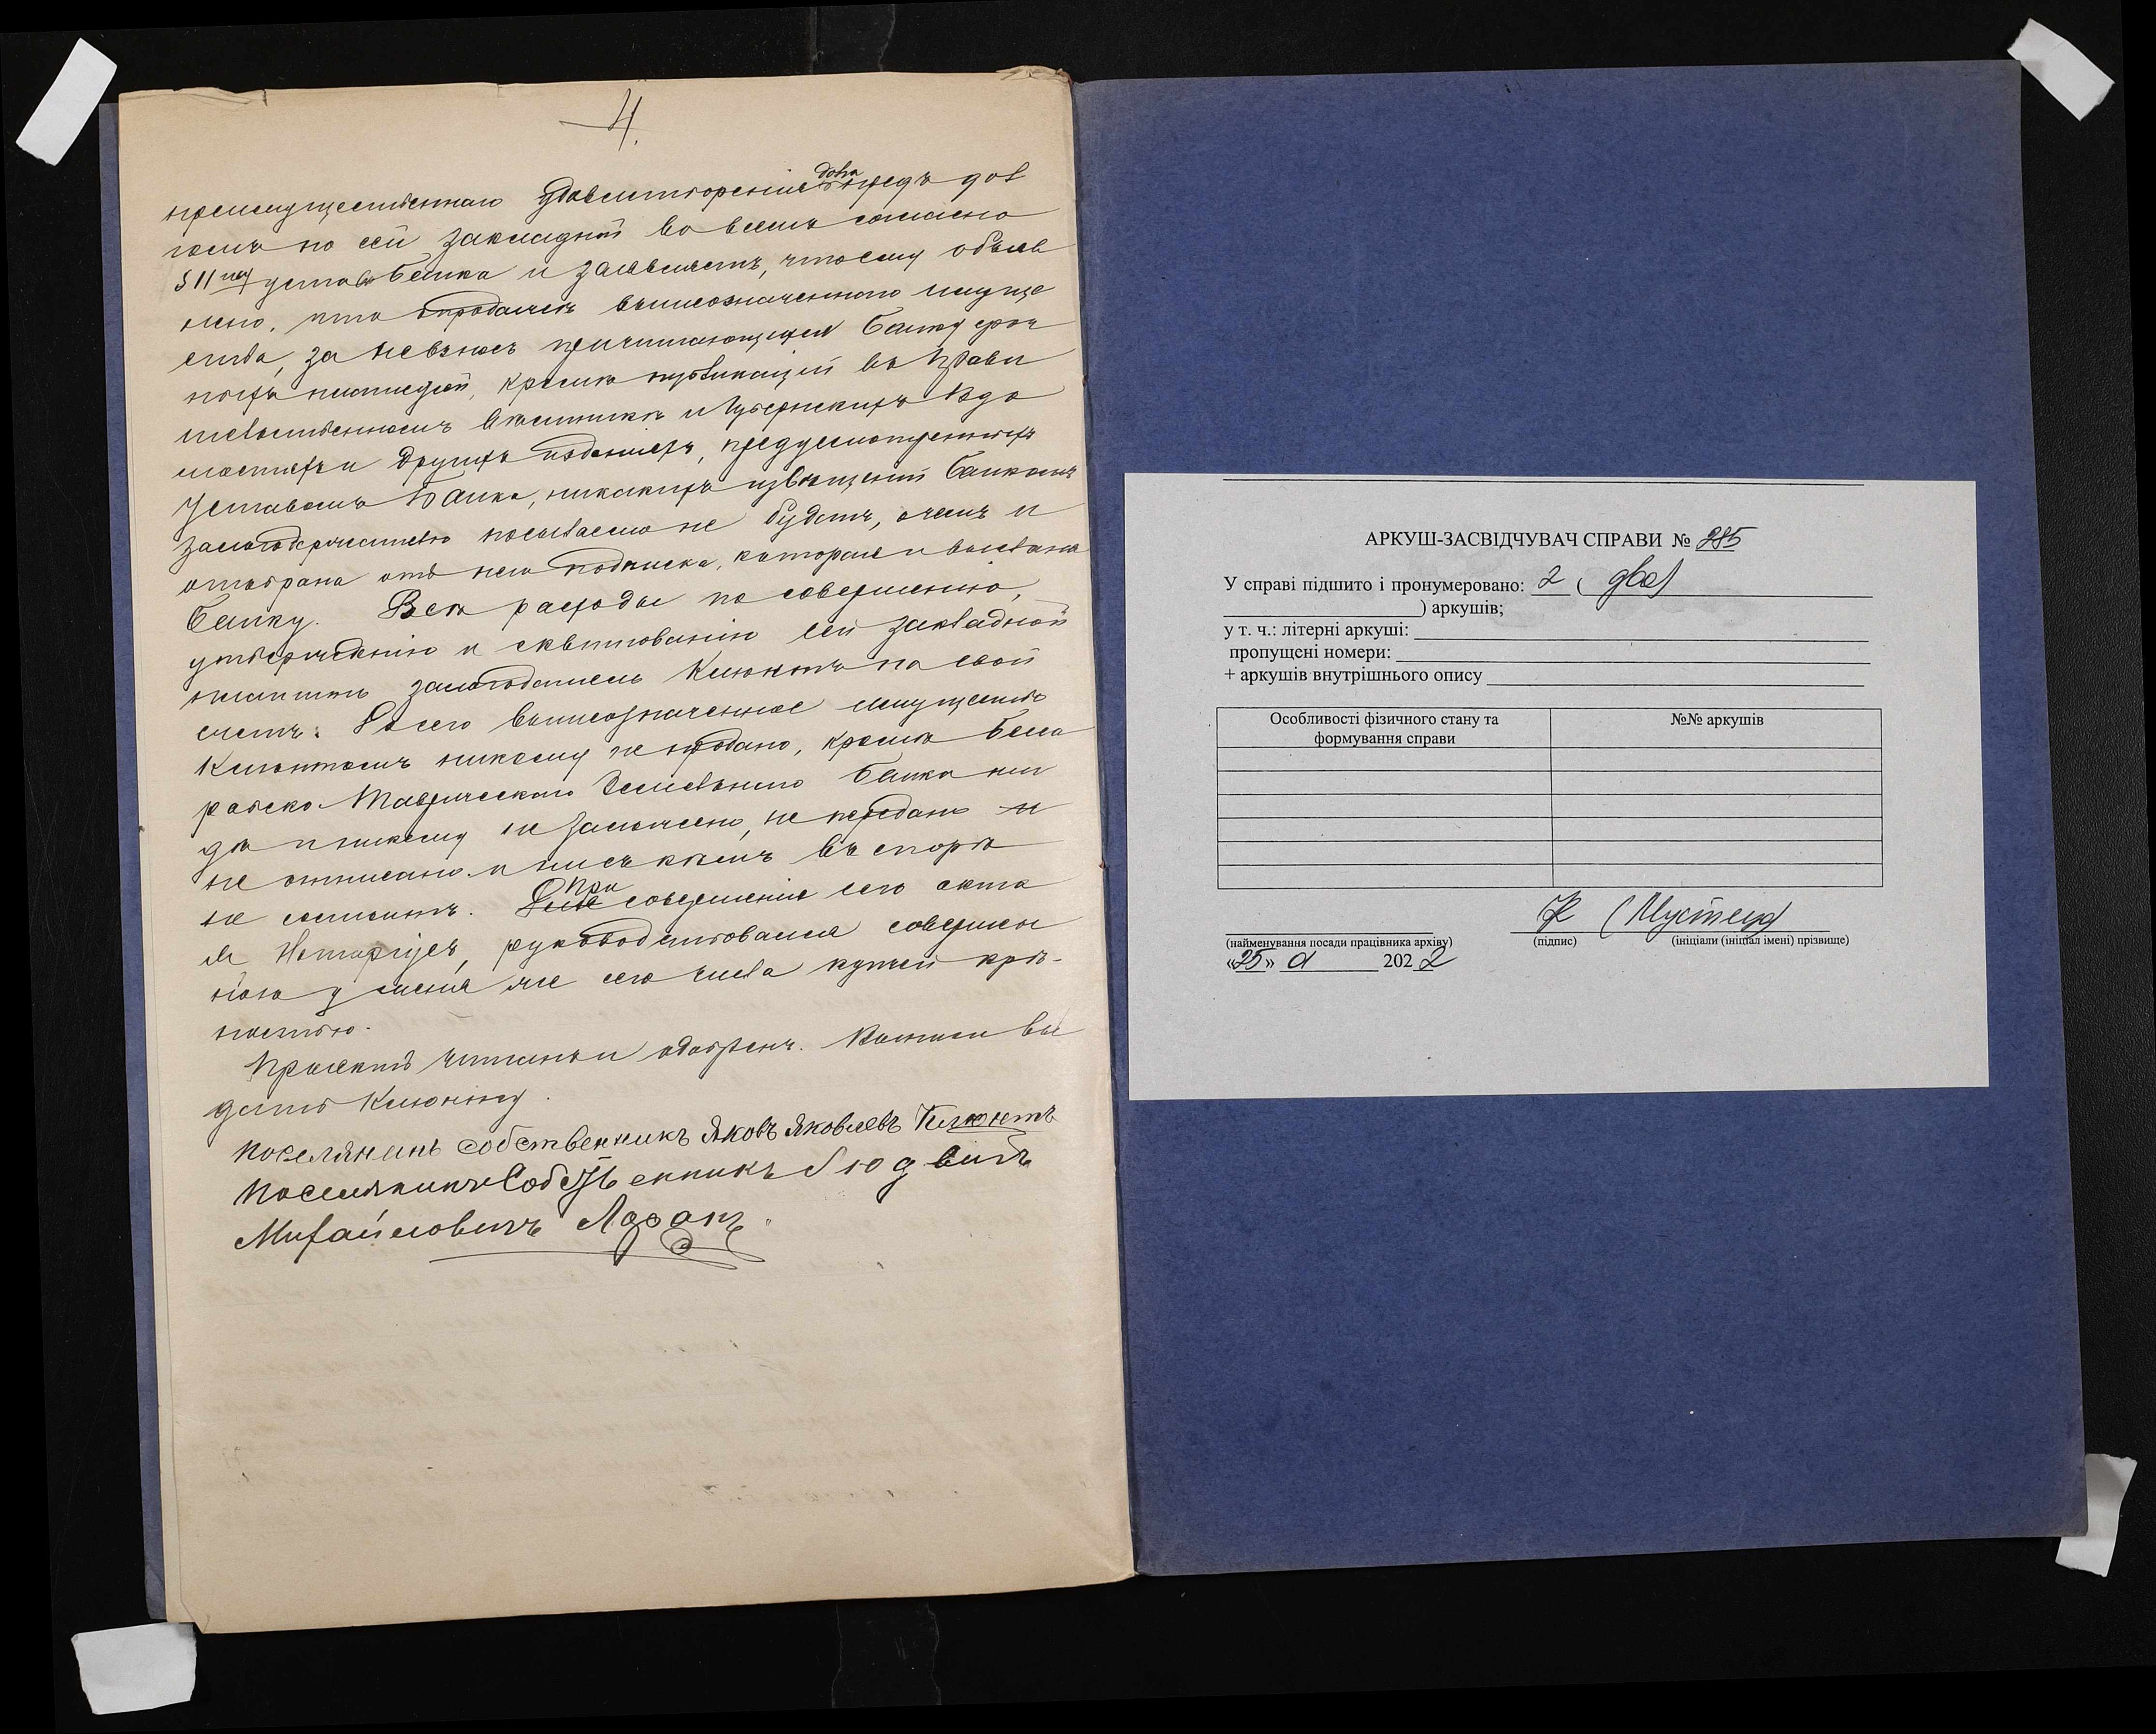 4.
преимущественнаго удовлетворенія долга предъ дол
гомъ по сей закладной во всемъ согласно
§ 11 му устава Банка и заявляетъ, что ему объяв
лено, что о продажѣ вышеозначеннаго имуще
ства, за невзносъ причитающихся Банку сроч
ныхъ платежей, кромѣ публикацій въ Прави
тельственномъ Вѣстникѣ и Губернскихъ Вѣдо
мостяхъ и другихъ изданіяхъ, предусмотренныхъ
Уставомъ Банка, никакихъ извѣщеній Банкомъ
залогодержателю посылаемо не будетъ, о чемъ и
отобрана отъ него подписка, которая и выслана
Банку. Всѣ расходы по совершенію,
утвержденію и сквитованію сей закладной
платитъ залогодатель Клюнтъ на свой
счетъ. До сего вышеозначенное имущество
Клюнтомъ никому не продано, кромѣ Бесса
рабско-Таврическаго Земельнаго Банка ни
гдѣ и никому не заложено, не передано и
не отписано и ни съ кѣмъ въ спорѣ
не состоитъ. При совершеніи сего акта
я Нотаріусъ, руководствовался совершен
ною у меня же сего числа купчей крѣ-
постью.
Проектъ читанъ и одобренъ. Выписи вы
дать Клюнту.
Поселянинъ собственникъ Яковъ Яковлевъ Клюнтъ
Поселянинъ Собственникъ Людвигъ
Михайловичъ
АРКУШ-ЗАСВІДЧУВАЧ СПРАВИ № 285
У справі підшито і пронумеровано: 2 ( два)
) аркушів;
у т. ч.: літерні аркуші:
пропущені номери:
+ аркушів внутрішнього опису
Особливості фізичного стану та формування справи
№№ аркушів
(найменування посади працівника архіву)
(підпис)
(ініціали (ініціал імені) прізвище)
«25» 2022